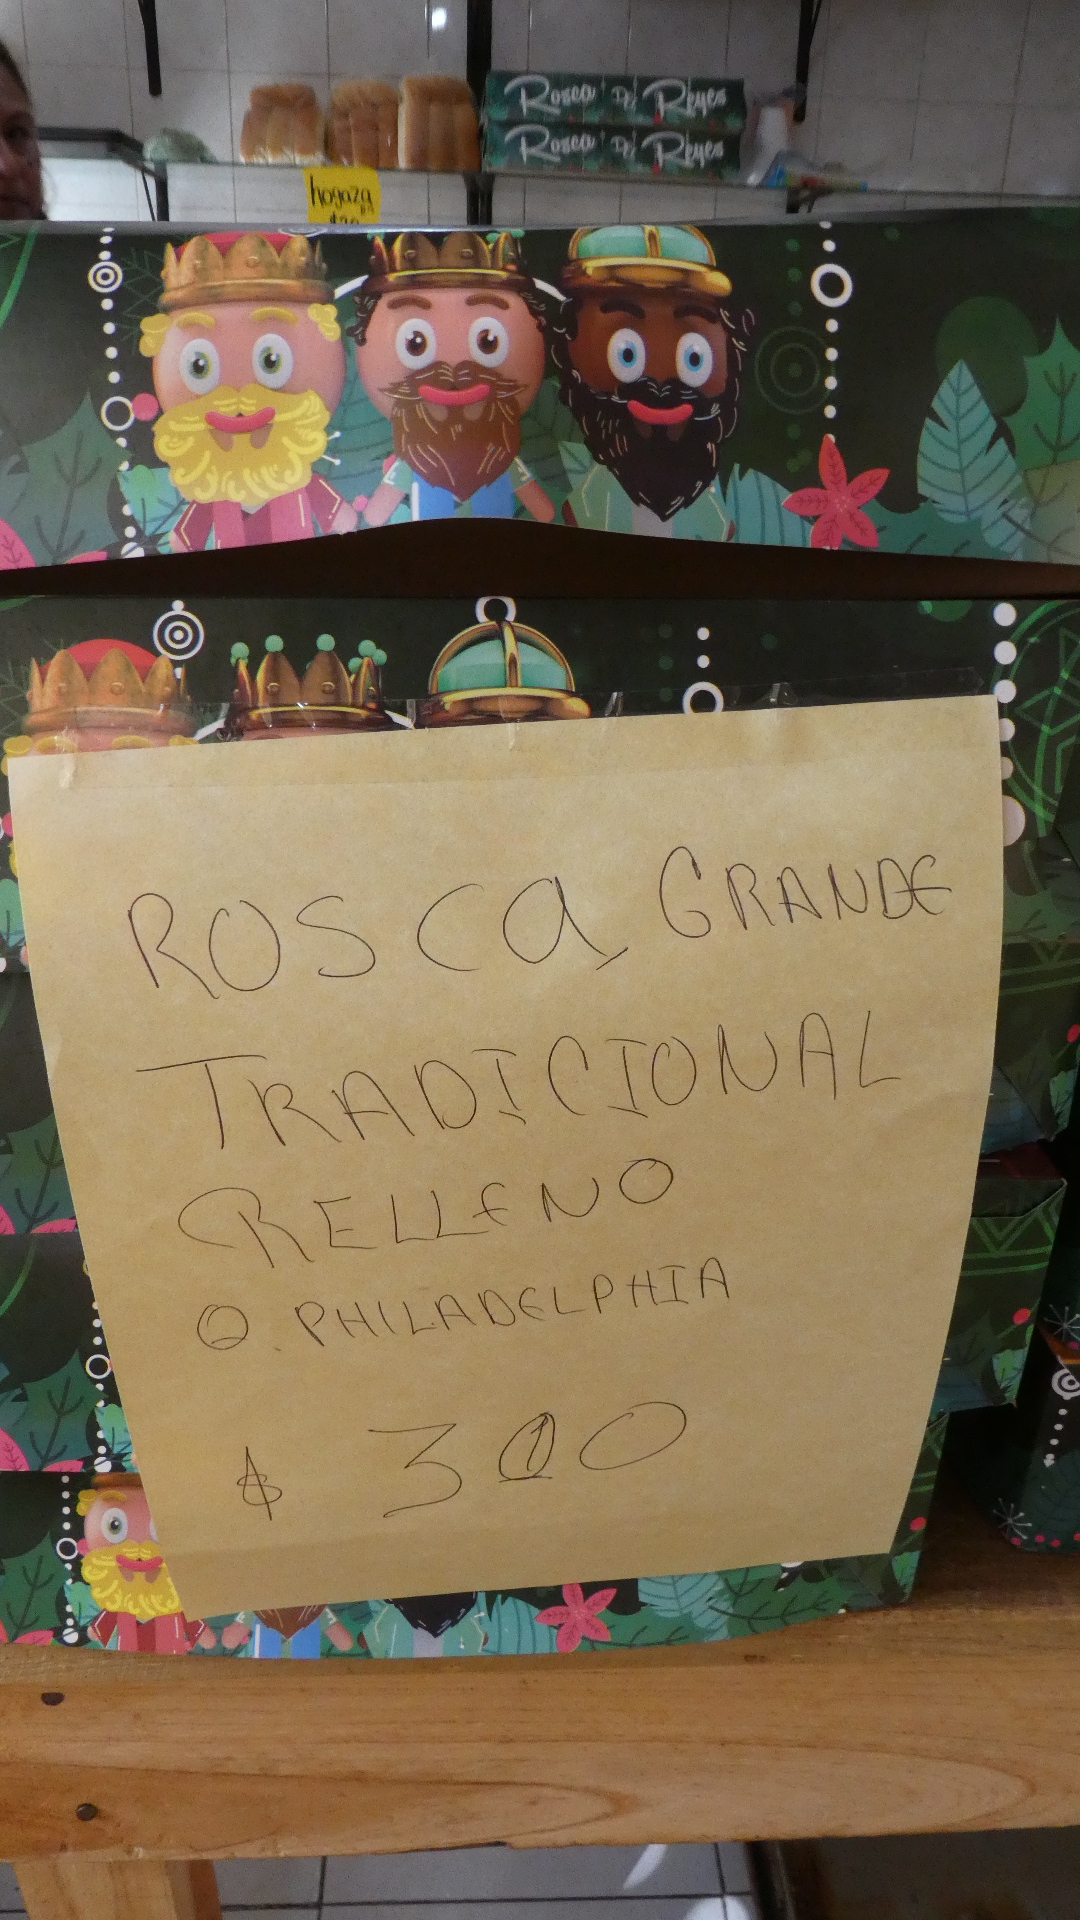 Rosca De Reyes
Rosca De Reyes
hogaza
ROSCA GRANDE
TRADICIONAL
RELLENO
O PHILADELPHIA
$ 300